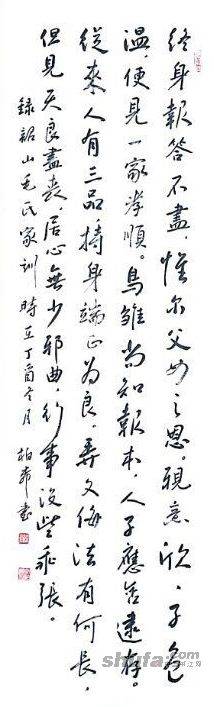 終身報答不盡，惟尔父母之恩。親意欣、子色
温，便見一家孝順。烏雛尚知報本，人子應存。
從來人有三品，持身端正為良，弄文侮法有何長，
但見天良盡喪。居心無少邪曲，行事沒些乖張。
錄韶山毛氏家訓 時在丁酉冬月 柏書